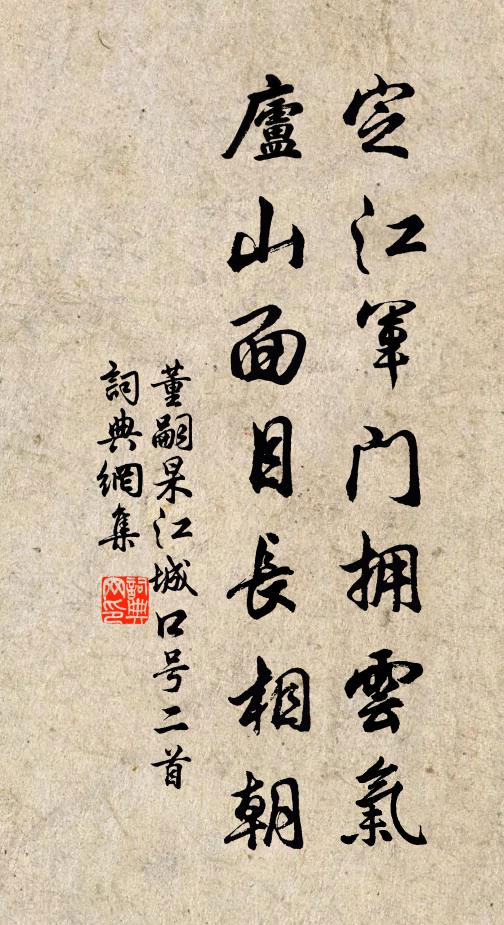 定江軍门拥雲氣
廬山面目長相朝
董嗣杲江城口号二首
詞典網集
詞典网印